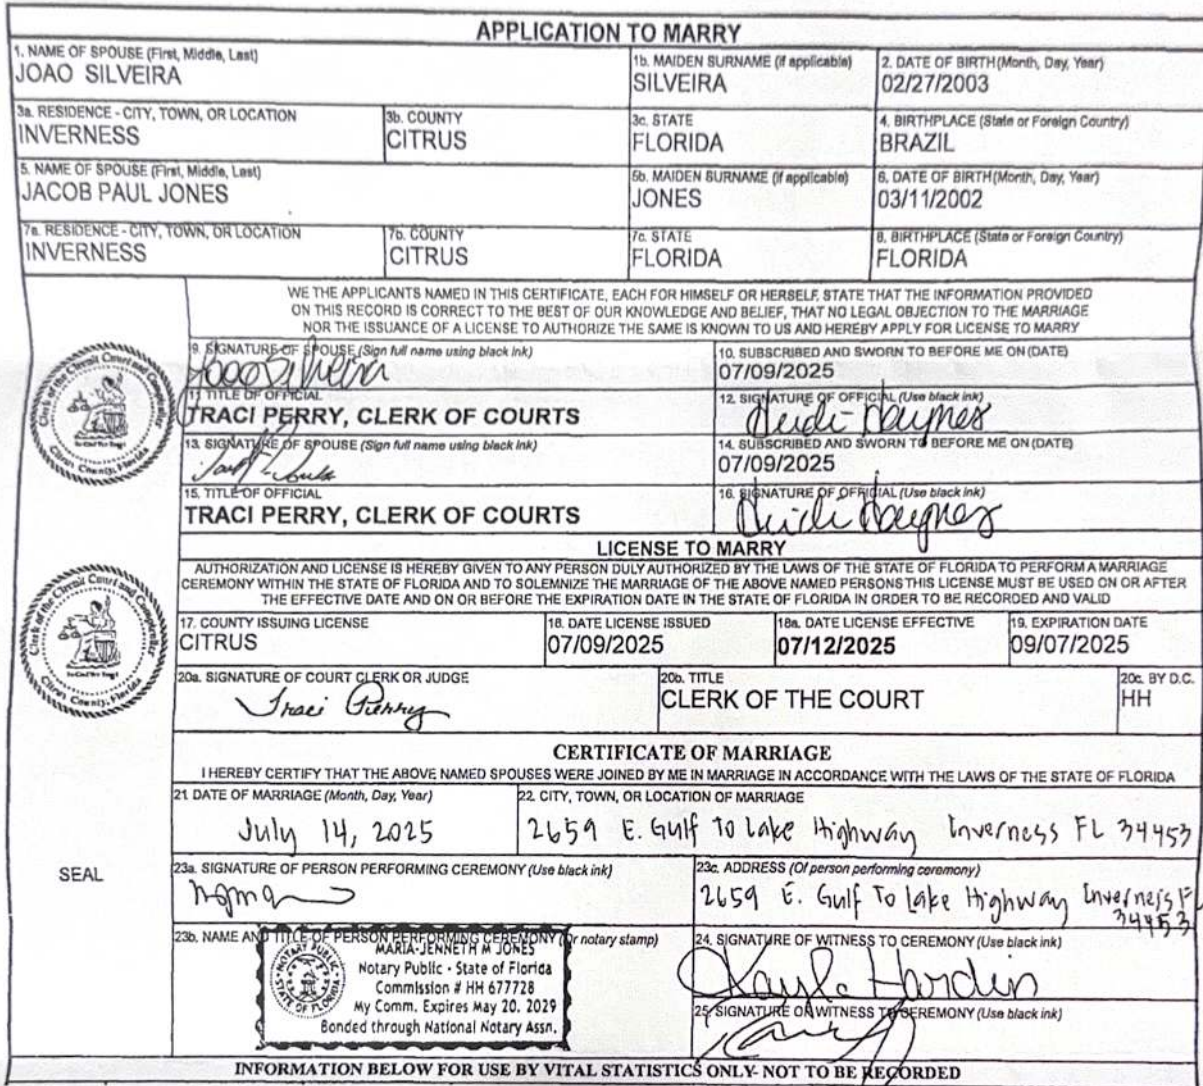 APPLICATION TO MARRY
1. NAME OF SPOUSE (First, Middle, Last)
JOAO SILVEIRA
1b. MAIDEN SURNAME (if applicable)
SILVEIRA
2. DATE OF BIRTH (Month, Day, Year)
02/27/2003
3a. RESIDENCE - CITY, TOWN, OR LOCATION
INVERNESS
3b. COUNTY
CITRUS
3c. STATE
FLORIDA
4. BIRTHPLACE (State or Foreign Country)
BRAZIL
5. NAME OF SPOUSE (First, Middle, Last)
JACOB PAUL JONES
5b. MAIDEN SURNAME (if applicable)
JONES
6. DATE OF BIRTH (Month, Day, Year)
03/11/2002
7a. RESIDENCE - CITY, TOWN, OR LOCATION
INVERNESS
7b. COUNTY
CITRUS
7c. STATE
FLORIDA
8. BIRTHPLACE (State or Foreign Country)
FLORIDA
WE THE APPLICANTS NAMED IN THIS CERTIFICATE, EACH FOR HIMSELF OR HERSELF, STATE THAT THE INFORMATION PROVIDED
ON THIS RECORD IS CORRECT TO THE BEST OF OUR KNOWLEDGE AND BELIEF, THAT NO LEGAL OBJECTION TO THE MARRIAGE
NOR THE ISSUANCE OF A LICENSE TO AUTHORIZE THE SAME IS KNOWN TO US AND HEREBY APPLY FOR LICENSE TO MARRY
Clerk of the Circuit Court and Comptroller
In God We Trust
Citrus County, Florida
9. SIGNATURE OF SPOUSE (Sign full name using black ink)
Joao Silveira
10. SUBSCRIBED AND SWORN TO BEFORE ME ON (DATE)
07/09/2025
11. TITLE OF OFFICIAL
TRACI PERRY, CLERK OF COURTS
12. SIGNATURE OF OFFICIAL (Use black ink)
Heidi Haynes
13. SIGNATURE OF SPOUSE (Sign full name using black ink)
14. SUBSCRIBED AND SWORN TO BEFORE ME ON (DATE)
07/09/2025
15. TITLE OF OFFICIAL
TRACI PERRY, CLERK OF COURTS
16. SIGNATURE OF OFFICIAL (Use black ink)
Heidi Haynes
LICENSE TO MARRY
AUTHORIZATION AND LICENSE IS HEREBY GIVEN TO ANY PERSON DULY AUTHORIZED BY THE LAWS OF THE STATE OF FLORIDA TO PERFORM A MARRIAGE
CEREMONY WITHIN THE STATE OF FLORIDA AND TO SOLEMNIZE THE MARRIAGE OF THE ABOVE NAMED PERSONS THIS LICENSE MUST BE USED ON OR AFTER
THE EFFECTIVE DATE AND ON OR BEFORE THE EXPIRATION DATE IN THE STATE OF FLORIDA IN ORDER TO BE RECORDED AND VALID
Clerk of the Circuit Court and Comptroller
In God We Trust
Citrus County, Florida
17. COUNTY ISSUING LICENSE
CITRUS
18. DATE LICENSE ISSUED
07/09/2025
18a. DATE LICENSE EFFECTIVE
07/12/2025
19. EXPIRATION DATE
09/07/2025
20a. SIGNATURE OF COURT CLERK OR JUDGE
Traci Perry
20b. TITLE
CLERK OF THE COURT
20c. BY D.C.
HH
CERTIFICATE OF MARRIAGE
I HEREBY CERTIFY THAT THE ABOVE NAMED SPOUSES WERE JOINED BY ME IN MARRIAGE IN ACCORDANCE WITH THE LAWS OF THE STATE OF FLORIDA
21. DATE OF MARRIAGE (Month, Day, Year)
July 14, 2025
22. CITY, TOWN, OR LOCATION OF MARRIAGE
2659 E. Gulf To Lake Highway Inverness FL 34453
SEAL
23a. SIGNATURE OF PERSON PERFORMING CEREMONY (Use black ink)
23c. ADDRESS (Of person performing ceremony)
2659 E. Gulf To Lake Highway Inverness FL
34453
23b. NAME AND TITLE OF PERSON PERFORMING CEREMONY (Or notary stamp)
NOTARY PUBLIC
STATE OF FLORIDA
MARIA-JENNETH M JONES
Notary Public - State of Florida
Commission # HH 677728
My Comm. Expires May 20, 2029
Bonded through National Notary Assn.
24. SIGNATURE OF WITNESS TO CEREMONY (Use black ink)
Kayla Hardin
25. SIGNATURE OF WITNESS TO CEREMONY (Use black ink)
INFORMATION BELOW FOR USE BY VITAL STATISTICS ONLY- NOT TO BE RECORDED